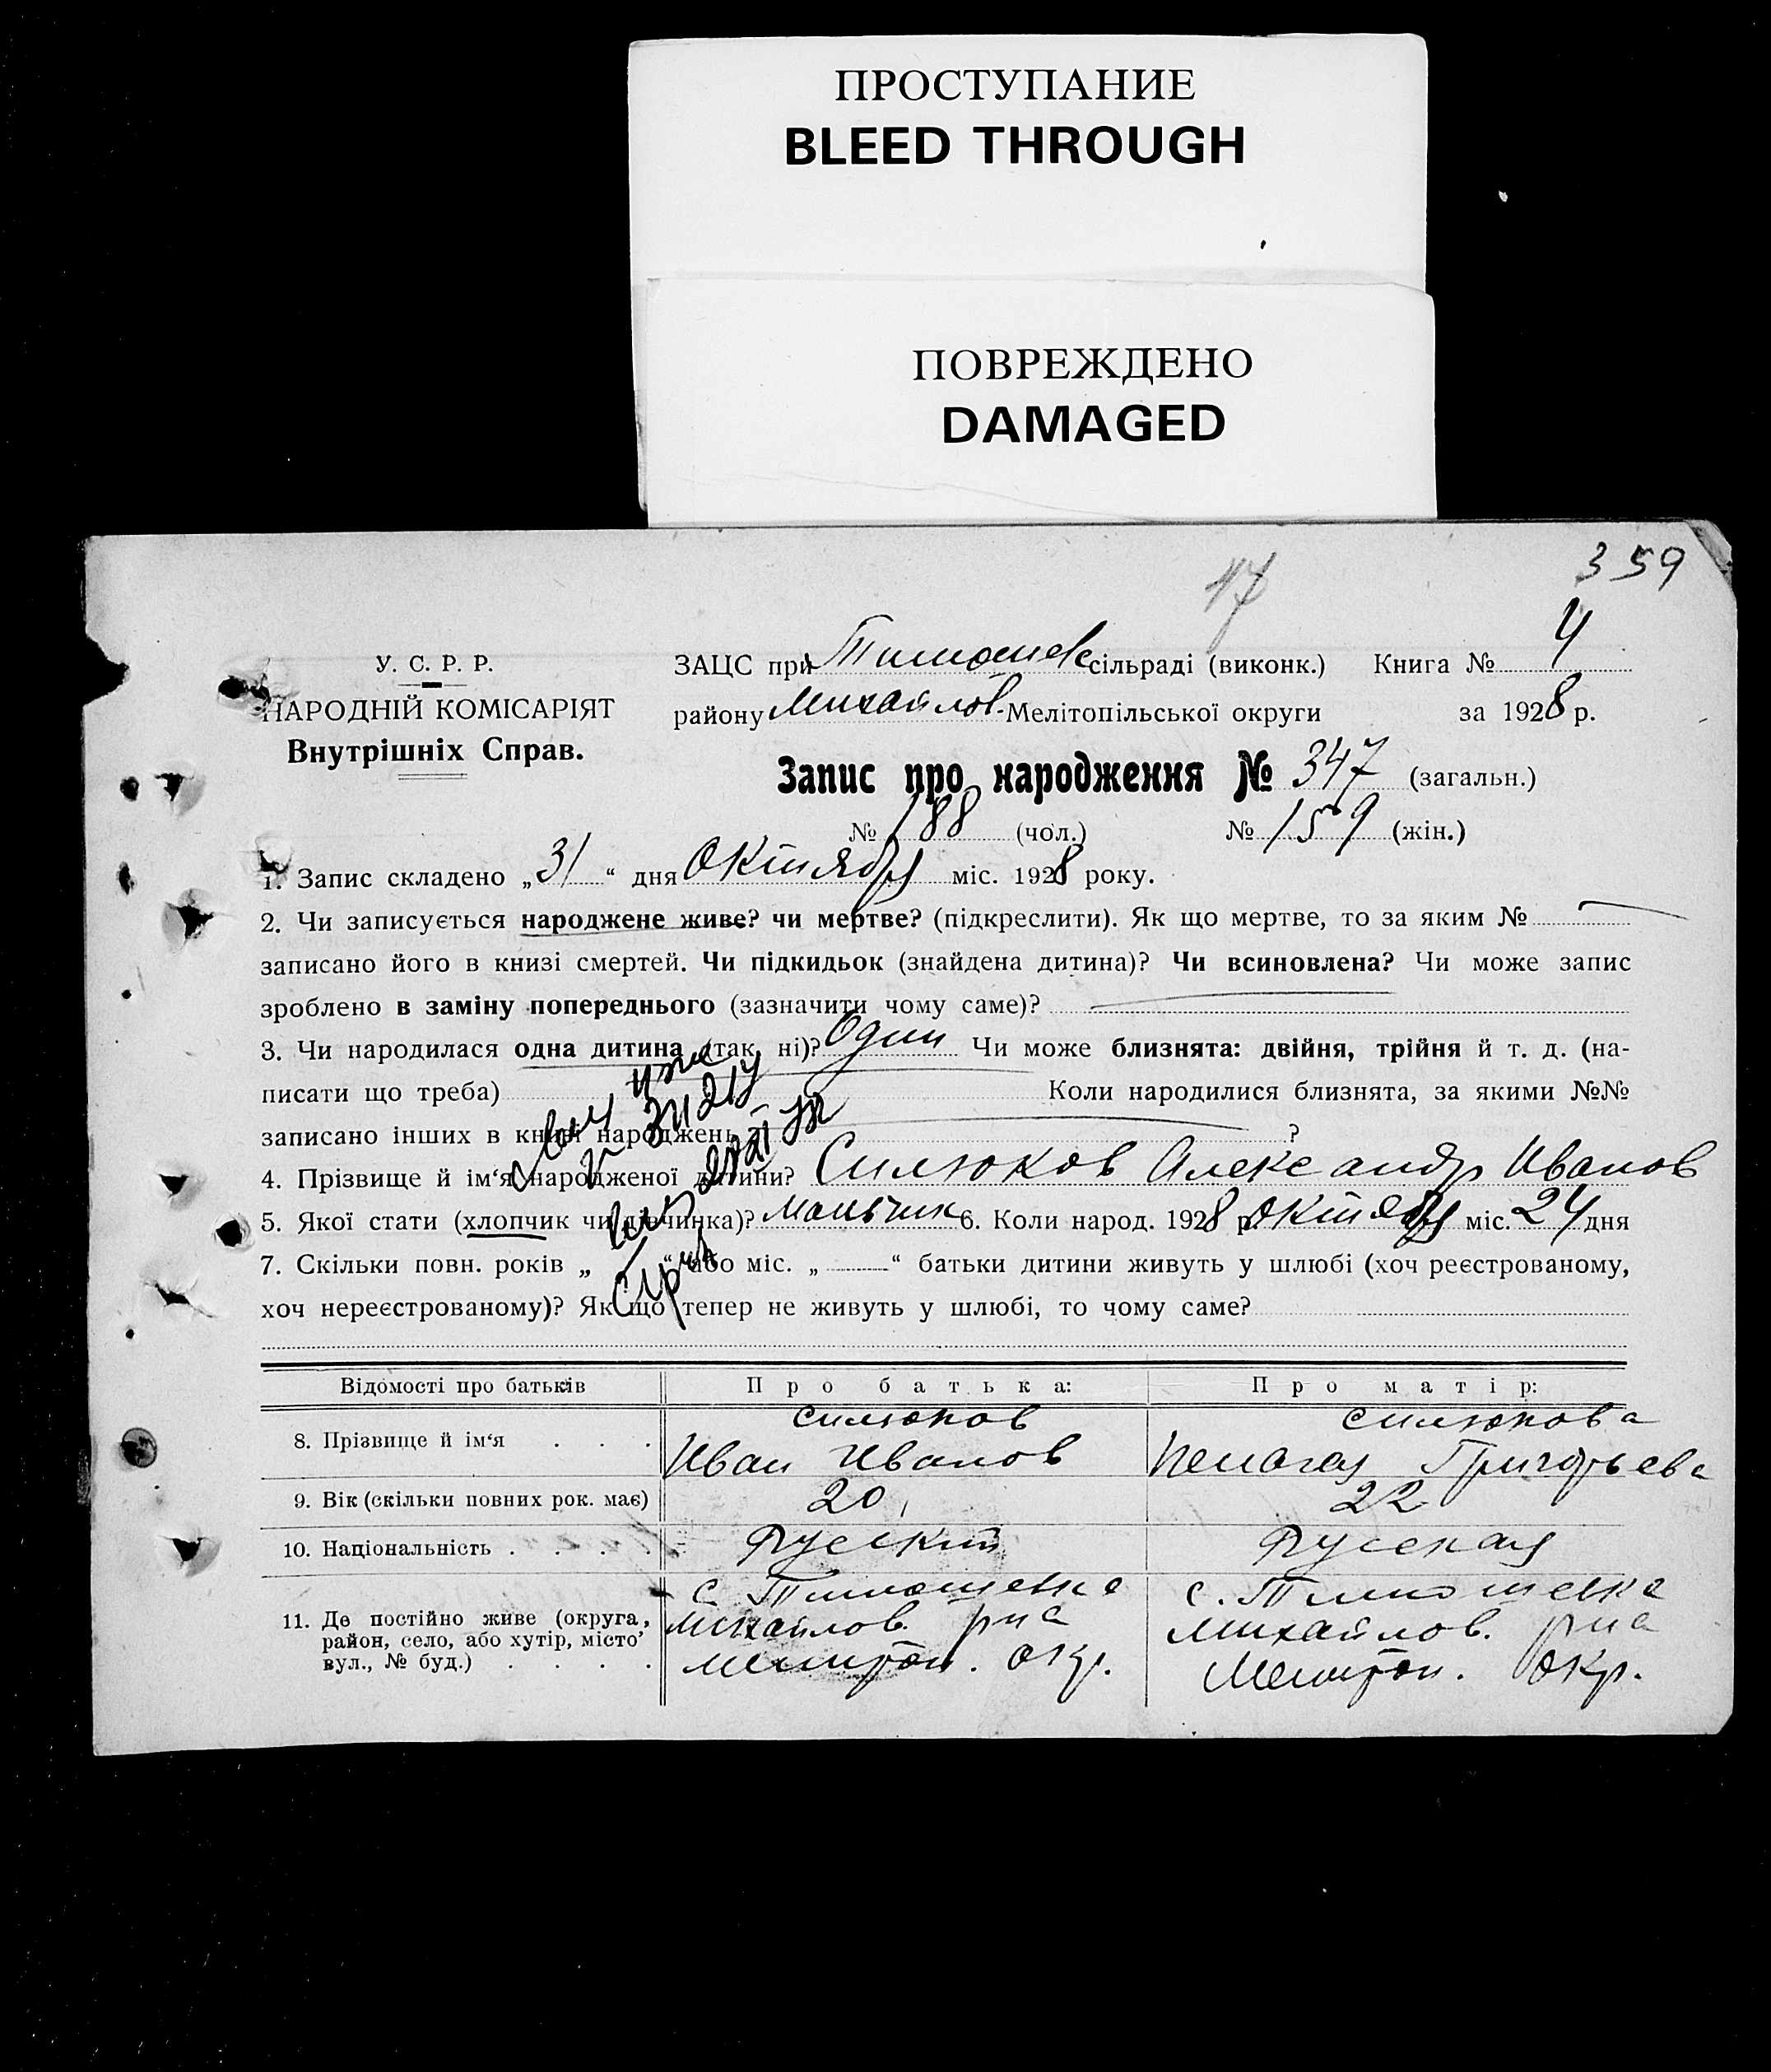 ПРОСТУПАНИЕ
BLEED THROUGH
ПОВРЕЖДЕНО
DAMAGED
359
17
У. С. Р. Р.
НАРОДНІЙ КОМІСАРІЯТ
Внутрішніх Справ.
ЗАЦС при Тимошев сільраді (виконк.) Книга № 4
району Михайлов. Мелітопільської округи за 1928 р.
Запис про народження № 347 (загальн.)
№ 188 (чол.) № 159 (жін.)
1. Запис складено „31“ дня Октября міс. 1928 року.
2. Чи записується народжене живе? чи мертве? (підкреслити). Як що мертве, то за яким № —
записано його в книзі смертей. Чи підкидьок (знайдена дитина)? Чи всиновлена? Чи може запис
зроблено в заміну попереднього (зазначити чому саме)?
3. Чи народилася одна дитина (так, ні)? Один Чи може близнята: двійня, трійня й т. д. (на-
писати що треба) Коли народилися близнята, за якими №№
записано інших в книзі народжень ?
4. Прізвище й ім‘я народженої дитини? Силюков Александр Иванов
5. Якої стати (хлопчик чи дівчинка)? Мальчик 6. Коли народ. 1928 р. Октября міс. 24 дня
7. Скільки повн. років „ — “ або міс. „ “ батьки дитини живуть у шлюбі (хоч реєстрованому,
хоч нереєстрованому)? Як що тепер не живуть у шлюбі, то чому саме?
Відомості про батьків Про батька: Про матір:
8. Прізвище й ім‘я . . . Силюков Иван Иванов Силюкова Пелагея Григорьева
9. Вік (скільки повних рок. має) 20 22
10. Національність . . . . Руский Русская
11. Де постійно живе (округа, с. Тимошевка с. Тимошевка
район, село, або хутір, місто, Михайлов. рна Михайлов. рна
вул., № буд.) . . . . Мелитоп. окр. Мелитоп. окр.